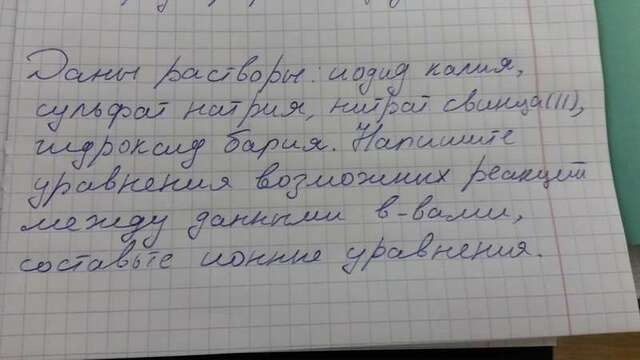 Даны растворы: иодид калия,
сульфат натрия, нитрат свинца(II),
гидроксид бария. Напишите
уравнения возможних реакций
между данными в-вами,
составьте ионные уравнения.